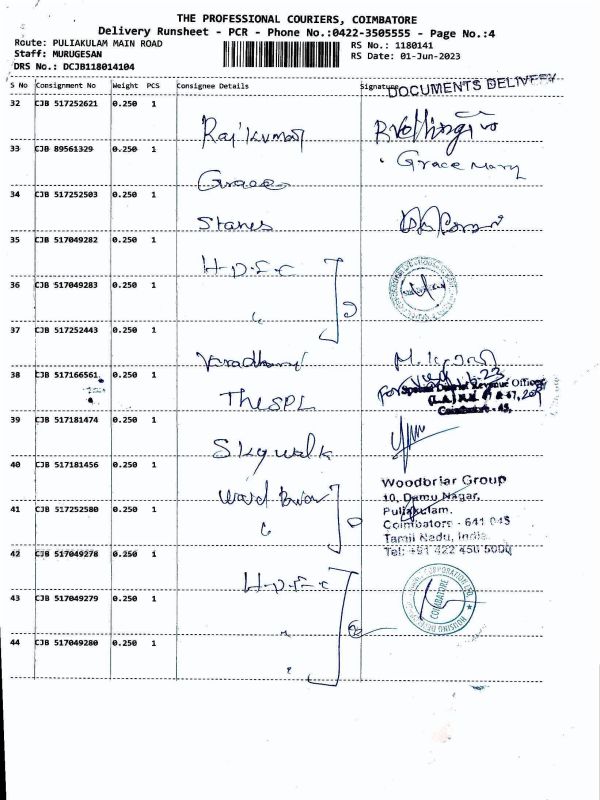 THE PROFESSIONAL COURIERS, COIMBATORE
Delivery Runsheet - PCR - Phone No.:0422-3505555 - Page No.:4
Route: PULIAKULAM MAIN ROAD
RS No.: 1180141
Staff: MURUGESAN
RS Date: 01-Jun-2023
DRS No.: DCJB118014104
S No Consignment No Weight PCS Consignee Details Signature
DOCUMENTS DELIVERY
32 CJB 517252621 0.250 1
Rajkumar
33 CJB 89561329 0.250 1
Grace Mary
Grace
34 CJB 517252503 0.250 1
Stanes
35 CJB 517049282 0.250 1
H.D.F.C
36 CJB 517049283 0.250 1
37 CJB 517252443 0.250 1
38 CJB 517166561 0.250 1
Special District Revenue Officer
(L.A.) N.H. 47 & 67,
Coimbatore - 45,
The SPL
39 CJB 517181474 0.250 1
Skywalk
40 CJB 517181456 0.250 1
Woodbriar Group
10, Damu Nagar,
41 CJB 517252580 0.250 1
Puliakulam.
Coimbatore - 641 045
Tamil Nadu, India.
Tel: +91 422 450 5000
42 CJB 517049278 0.250 1
H.D.F.C
43 CJB 517049279 0.250 1
COIMBATORE
44 CJB 517049280 0.250 1